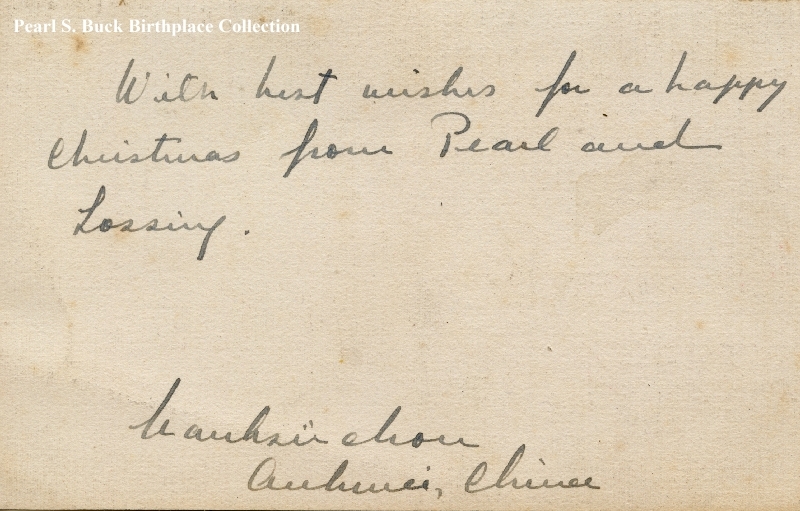 Pearl S. Buck Birthplace Collection
With best wishes for a happy
Christmas from Pearl and
Lossing.
Nanhsüchou
Anhwei, China